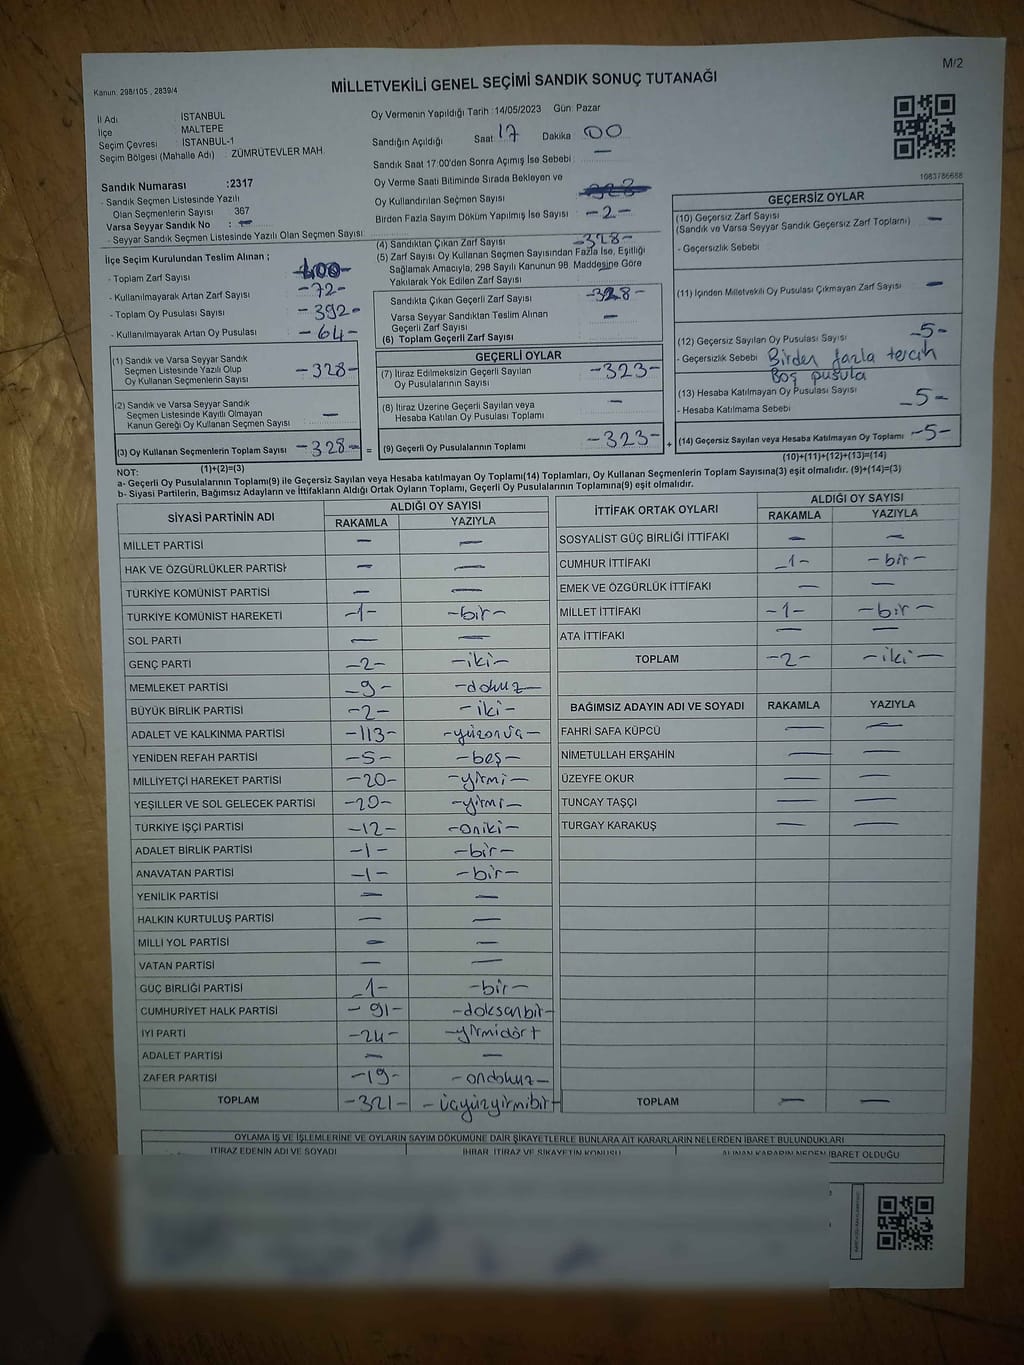 M/2
Kanun. 298/105 , 2839/4
MİLLETVEKİLİ GENEL SEÇİMİ SANDIK SONUÇ TUTANAĞI
İl Adı : İSTANBUL
İlçe : MALTEPE
Seçim Çevresi : İSTANBUL-1
Seçim Bölgesi (Mahalle Adı) : ZÜMRÜTEVLER MAH.
Oy Vermenin Yapıldığı Tarih :14/05/2023 Gün: Pazar
Sandığın Açıldığı Saat 17 Dakika 00
Sandık Saat 17:00'den Sonra Açımış İse Sebebi : —
Oy Verme Saati Bitiminde Sırada Bekleyen ve
Oy Kullandırılan Seçmen Sayısı :
Birden Fazla Sayım Döküm Yapılmış İse Sayısı : -2-
1083786688
Sandık Numarası :2317
- Sandık Seçmen Listesinde Yazılı
Olan Seçmenlerin Sayısı : 367
Varsa Seyyar Sandık No : —
- Seyyar Sandık Seçmen Listesinde Yazılı Olan Seçmen Sayısı:
İlçe Seçim Kurulundan Teslim Alınan ;
- Toplam Zarf Sayısı : -400-
- Kullanılmayarak Artan Zarf Sayısı : -72-
- Toplam Oy Pusulası Sayısı : -392-
- Kullanılmayarak Artan Oy Pusulası : -64-
(1) Sandık ve Varsa Seyyar Sandık
Seçmen Listesinde Yazılı Olup
Oy Kullanan Seçmenlerin Sayısı -328-
(2) Sandık ve Varsa Seyyar Sandık
Seçmen Listesinde Kayıtlı Olmayan
Kanun Gereği Oy Kullanan Seçmen Sayısı —
(3) Oy Kullanan Seçmenlerin Toplam Sayısı -328- =
(4) Sandıktan Çıkan Zarf Sayısı : -328-
(5) Zarf Sayısı Oy Kullanan Seçmen Sayısından Fazla İse, Eşitliği
Sağlamak Amacıyla, 298 Sayılı Kanunun 98. Maddesine Göre
Yakılarak Yok Edilen Zarf Sayısı :
Sandıkta Çıkan Geçerli Zarf Sayısı : -328-
Varsa Seyyar Sandıktan Teslim Alınan
Geçerli Zarf Sayısı : —
(6) Toplam Geçerli Zarf Sayısı :
GEÇERLİ OYLAR
(7) İtiraz Edilmeksizin Geçerli Sayılan
Oy Pusulalarının Sayısı -323-
(8) İtiraz Üzerine Geçerli Sayılan veya
Hesaba Katılan Oy Pusulası Toplamı —
(9) Geçerli Oy Pusulalarının Toplamı -323- +
GEÇERSİZ OYLAR
(10) Geçersiz Zarf Sayısı —
(Sandık ve Varsa Seyyar Sandık Geçersiz Zarf Toplamı)
- Geçersizlik Sebebi
(11) İçinden Milletvekili Oy Pusulası Çıkmayan Zarf Sayısı —
(12) Geçersiz Sayılan Oy Pusulası Sayısı -5-
- Geçersizlik Sebebi Birden fazla tercih
Boş pusula
(13) Hesaba Katılmayan Oy Pusulası Sayısı -5-
- Hesaba Katılmama Sebebi
(14) Geçersiz Sayılan veya Hesaba Katılmayan Oy Toplamı -5-
NOT: (1)+(2)=(3)
(10)+(11)+(12)+(13)=(14)
a- Geçerli Oy Pusulalarının Toplamı(9) ile Geçersiz Sayılan veya Hesaba katılmayan Oy Toplamı(14) Toplamları, Oy Kullanan Seçmenlerin Toplam Sayısına(3) eşit olmalıdır. (9)+(14)=(3)
b- Siyasi Partilerin, Bağımsız Adayların ve İttifakların Aldığı Ortak Oyların Toplamı, Geçerli Oy Pusulalarının Toplamına(9) eşit olmalıdır.
SİYASİ PARTİNİN ADI ALDIĞI OY SAYISI
RAKAMLA YAZIYLA
MİLLET PARTİSİ — —
HAK VE ÖZGÜRLÜKLER PARTİSİ — —
TÜRKİYE KOMÜNİST PARTİSİ — —
TÜRKİYE KOMÜNİST HAREKETİ -1- -bir-
SOL PARTİ — —
GENÇ PARTİ -2- -iki-
MEMLEKET PARTİSİ -9- -dokuz-
BÜYÜK BİRLİK PARTİSİ -2- -iki-
ADALET VE KALKINMA PARTİSİ -113- -yüzonüç-
YENİDEN REFAH PARTİSİ -5- -beş-
MİLLİYETÇİ HAREKET PARTİSİ -20- -yirmi-
YEŞİLLER VE SOL GELECEK PARTİSİ -20- -yirmi-
TÜRKİYE İŞÇİ PARTİSİ -12- -oniki-
ADALET BİRLİK PARTİSİ -1- -bir-
ANAVATAN PARTİSİ -1- -bir-
YENİLİK PARTİSİ — —
HALKIN KURTULUŞ PARTİSİ — —
MİLLİ YOL PARTİSİ — —
VATAN PARTİSİ — —
GÜÇ BİRLİĞİ PARTİSİ -1- -bir-
CUMHURİYET HALK PARTİSİ -91- -doksanbir-
İYİ PARTİ -24- -yirmidört
ADALET PARTİSİ — —
ZAFER PARTİSİ -19- -ondokuz-
TOPLAM -321- -üçyüzyirmibir-
İTTİFAK ORTAK OYLARI ALDIĞI OY SAYISI
RAKAMLA YAZIYLA
SOSYALİST GÜÇ BİRLİĞİ İTTİFAKI — —
CUMHUR İTTİFAKI -1- -bir-
EMEK VE ÖZGÜRLÜK İTTİFAKI — —
MİLLET İTTİFAKI -1- -bir-
ATA İTTİFAKI — —
TOPLAM -2- -iki-
BAĞIMSIZ ADAYIN ADI VE SOYADI RAKAMLA YAZIYLA
FAHRİ SAFA KÜPCÜ — —
NİMETULLAH ERŞAHİN — —
ÜZEYFE OKUR — —
TUNCAY TAŞÇI — —
TURGAY KARAKUŞ — —
TOPLAM — —
OYLAMA İŞ VE İŞLEMLERİNE VE OYLARIN SAYIM DÖKÜMÜNE DAİR ŞİKAYETLERLE BUNLARA AİT KARARLARIN NELERDEN İBARET BULUNDUKLARI
İTİRAZ EDENİN ADI VE SOYADI İHBAR, İTİRAZ VE ŞİKAYETİN KONUSU ALINAN KARARIN NEDEN İBARET OLDUĞU